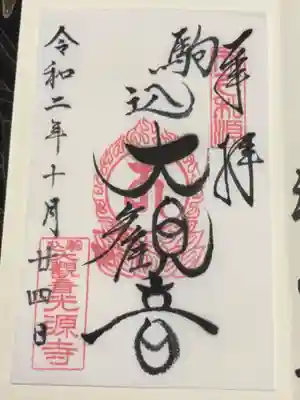 奉拝
駒込
大觀音
令和二年十月廿四日
駒込
大觀音光源寺